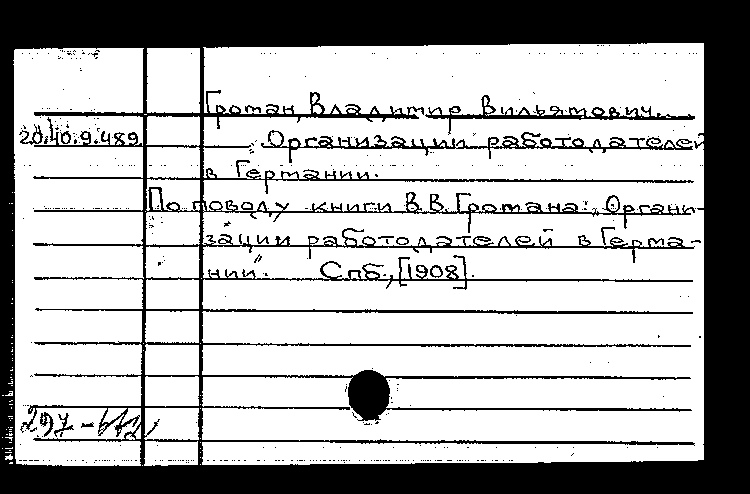 Гротан, Владимир Вильямович.
20.40.9.489
„Организации работодателей
в Германии.
По поводу книги В.В. Гротана: „Органи-
зации работодателей в Герма-
нии“. Спб., [1908].